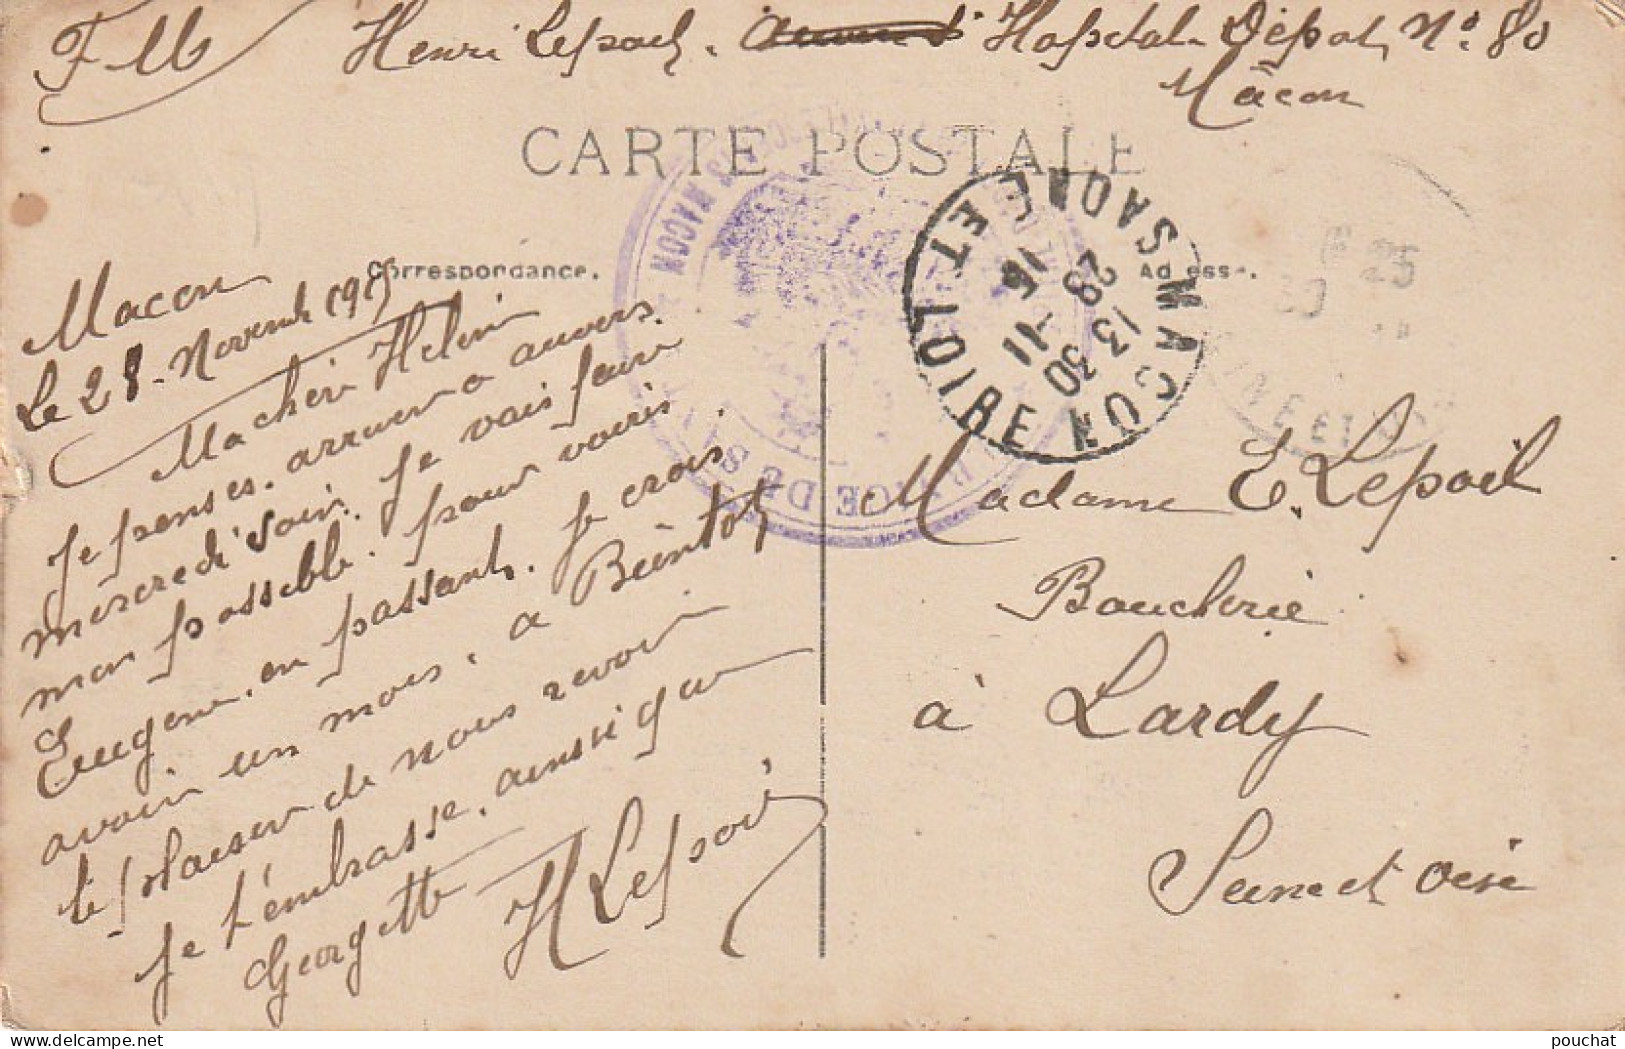 F M Henri Lepoil. Hopital Dépot, No. 80
Mâcon
CARTE POSTALE
Correspondance.
Adresse.
Macon
Le 28. Novemb 1915
Ma chéri Helèni
Je penses. arriver a anvers.
mercredi soir. Je vais faire
mon possible. pour voiris
Eugene. en passant. Je crois
avoir un mois. a Bientot
le plaiser de nous revoir
Je t'embrasse. ainsi que
Georgette H Lepoil
MACON
MACON SAONE ET LOIRE
13 30
29 -11
15
25
Madame E. Lepoil
Boucherie
à Lardy
Seine et oise
pouchat